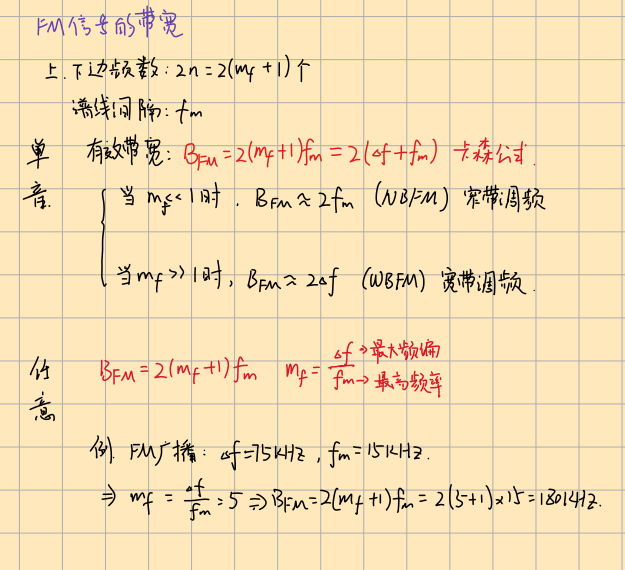 FM信号的带宽
上.下边频数：2n = 2(m_f + 1) 个
谱线间隔：f_m
单音
有效带宽：B_FM = 2(m_f+1)f_m = 2(Δf + f_m) 卡森公式.
当 m_f << 1时，B_FM ≈ 2f_m （NBFM）窄带调频
当 m_f >> 1时，B_FM ≈ 2Δf （WBFM）宽带调频.
任意
B_FM = 2(m_f+1)f_m   m_f = Δf/f_m
Δf → 最大频偏
f_m → 最高频率
例. FM广播：Δf = 75KHz，f_m = 15KHz.
⇒ m_f = Δf/f_m = 5 ⇒ B_FM = 2(m_f+1)f_m = 2(5+1)×15 = 180KHz.